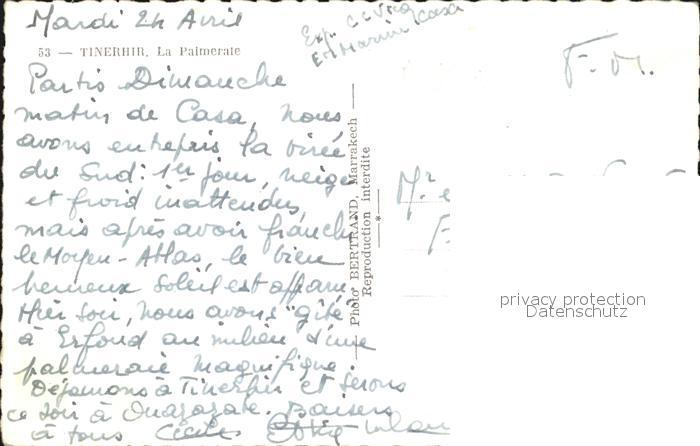 Mardi 24 Avril
53 — TINERHIR, La Palmeraie
Exp. 
F. M.
Partis Dimanche
matin de Casa, nous
avons entrepris la virée
du Sud: 1er jour, neige
et froid inattendus,
mais après avoir franchi
le Moyen-Atlas, le bien
heureux soleil est apparu.
Hier soir, nous avons "gîté"
à Erfoud au milieu d'une
palmeraie magnifique.
Déjeunons à Tinerhir et serons
ce soir à Ouarzazate. Baisers
à tous Cécile
Photo BERTRAND, Marrakech
Reproduction interdite
Mr
privacy protection
Datenschutz